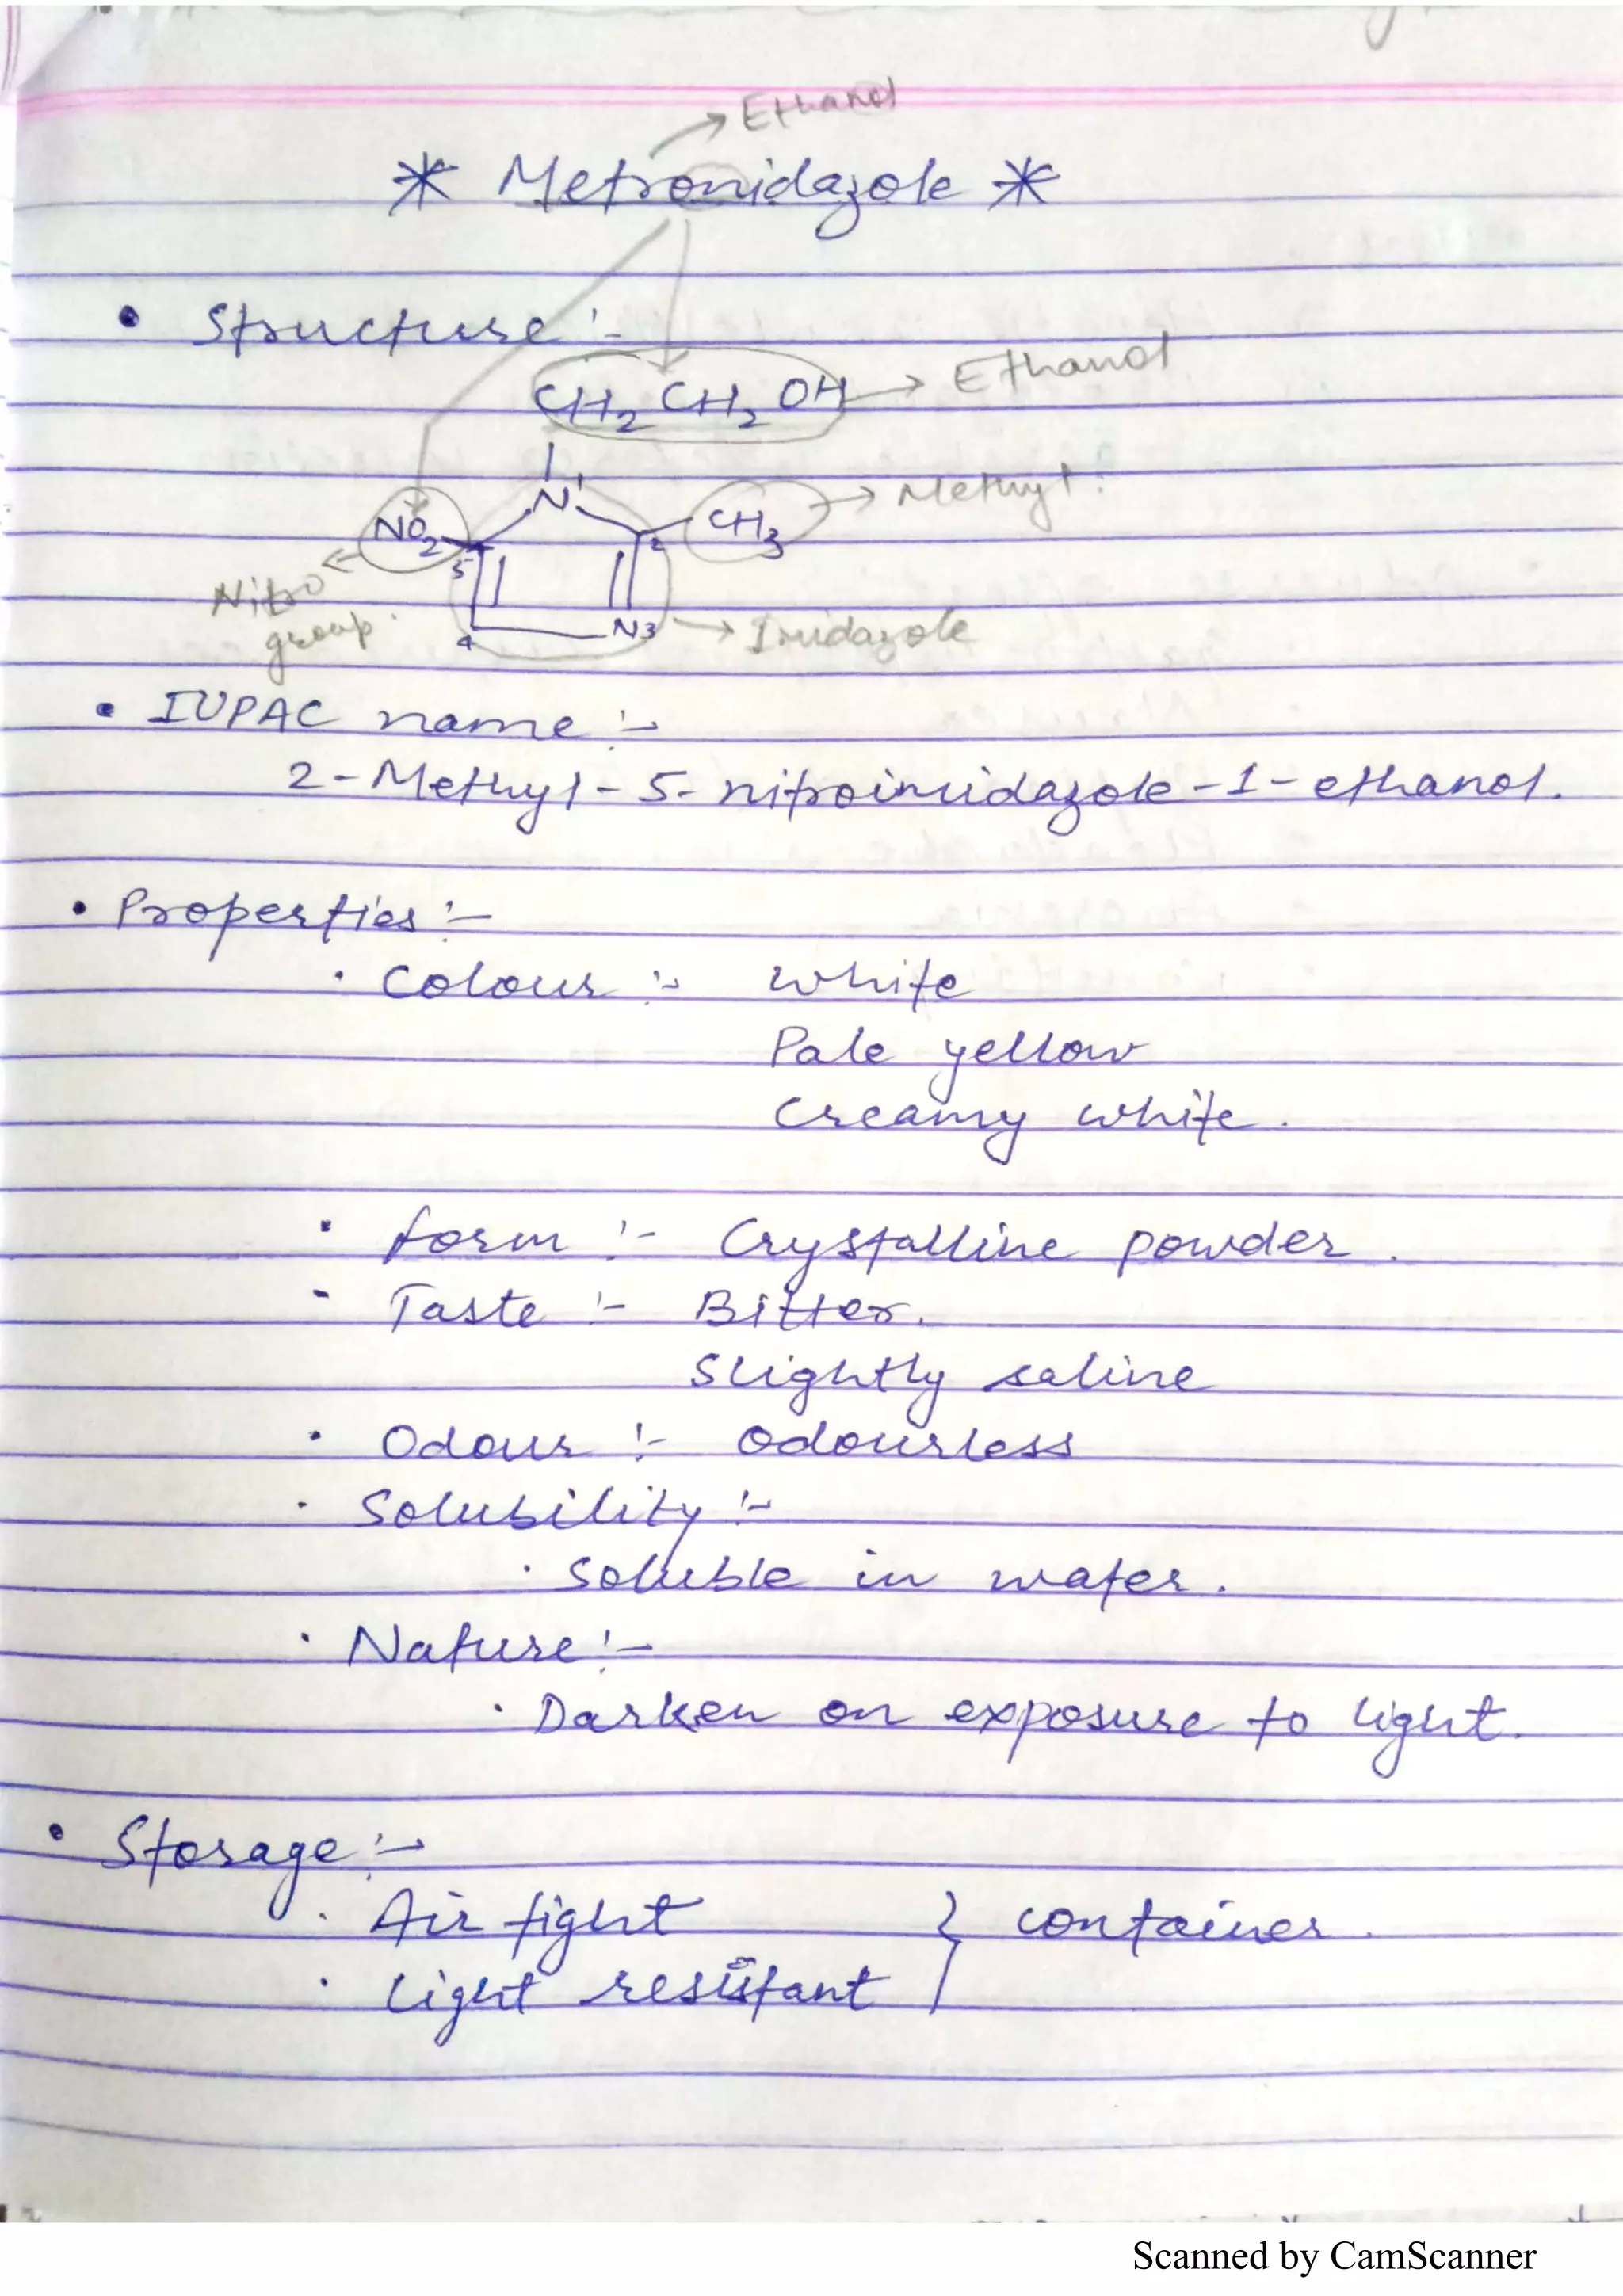 Ethanol
* Metronidazole *
• Structure :-
CH2 CH2 OH → Ethanol
N1
NO2 5 2 CH3 → Methyl.
Nitro group.
4 N3 → Imidazole
• IUPAC name :-
2-Methyl-5-nitroimidazole-1-ethanol.
• Properties :-
· Colour :- white
Pale yellow
Creamy white.
· form :- Crystalline powder.
- Taste :- Bitter.
Slightly saline
· Odour :- Odourless
· Solubility :-
· Soluble in water.
· Nature :-
· Darken on exposure to light.
• Storage :-
· Air tight } container.
· Light resistant
Scanned by CamScanner